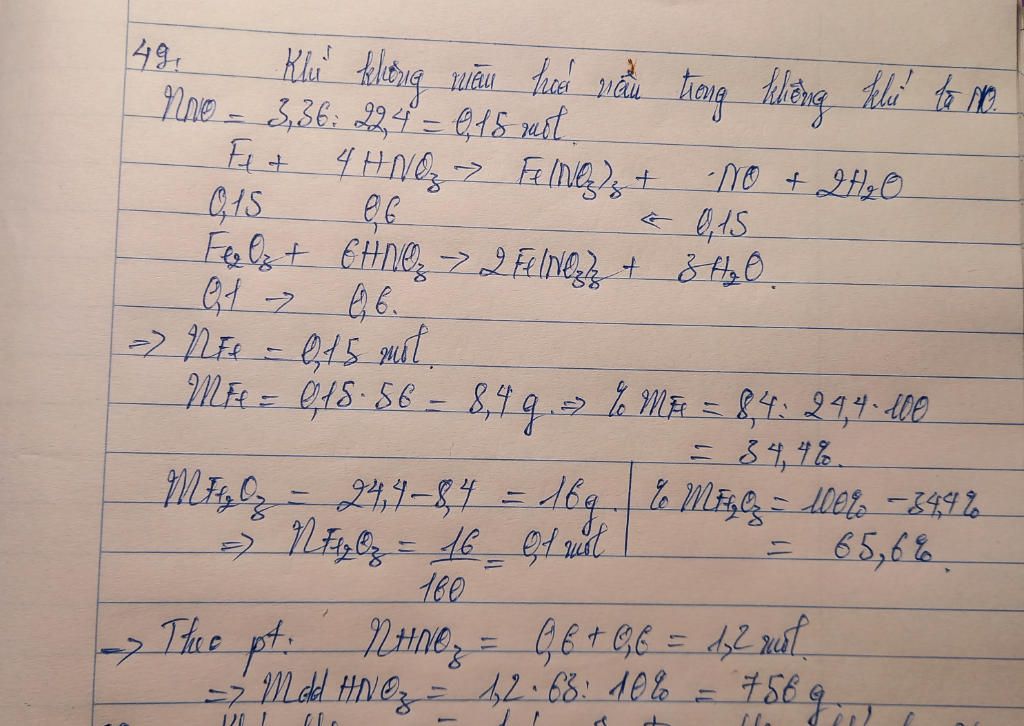 49. Khí không màu hoá nâu trong không khí là NO.
nNO = 3,36 : 22,4 = 0,15 mol.
Fe + 4HNO3 → Fe(NO3)3 + NO + 2H2O
0,15 0,6 ← 0,15
Fe2O3 + 6HNO3 → 2Fe(NO3)3 + 3H2O.
0,1 → 0,6.
=> nFe = 0,15 mol.
mFe = 0,15.56 = 8,4g. => % mFe = 8,4 : 24,4.100
= 34,4%.
mFe2O3 = 24,4 - 8,4 = 16g. % mFe2O3 = 100% - 34,4%
=> nFe2O3 = 16/160 = 0,1 mol = 65,6%.
=> Theo pt: nHNO3 = 0,6 + 0,6 = 1,2 mol.
=> mdd HNO3 = 1,2.63 : 10% = 756g.